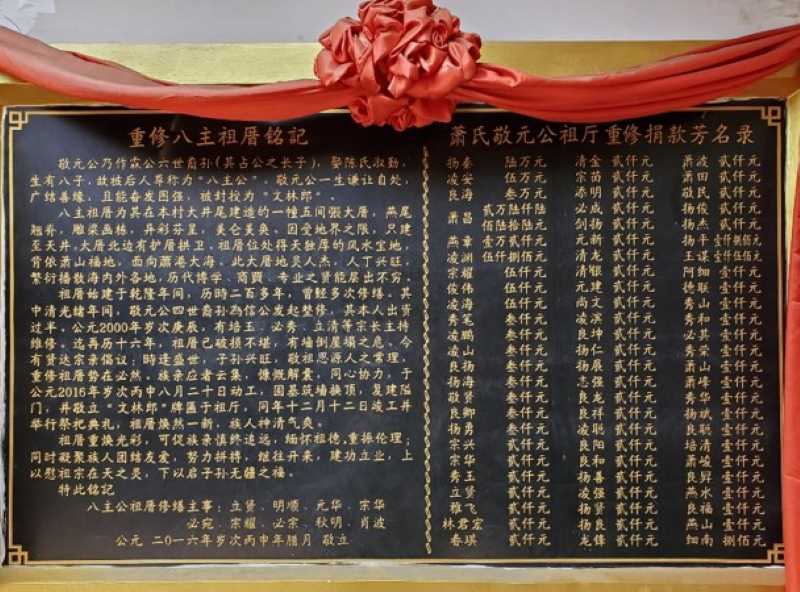 重修八主祖厝铭記
敬元公乃作霖公六世裔孙(其占公之长子),娶陈氏淑勤,
生有八子,故被后人尊称为“八主公”。敬元公一生谦让自处,
广结善缘,且能奋发图强,被封授为“文林郎”。
八主祖厝为其在本村大井尾建造的一幢五间張大厝,燕尾
翘脊,雕梁画栋,异彩芬呈,美仑美奂,因受地界之限,只建
至天井,大厝北边有护厝拱卫,祖厝位处得天独厚的风水宝地,
背依萧山福地,面向萧港大海,此大厝地灵人杰,人丁兴旺,
繁衍播散海内外各地,历代博学、商賈、专业之贤能层出不穷。
祖厝始建于乾隆年间,历時二百多年,曾经多次修缮。其
中清光绪年间,敬元公四世裔孙為信公发起整修,其本人出资
过半。公元2000年岁次庚辰,有培玉、必秀、立清等宗长主持
维修。迄再历十六年,祖厝已破損不堪,有墙倒屋塌之危。今
有贤达宗亲倡议;時逢盛世,子孙兴旺,敬祖思源人之常理,
重修祖厝势在必然。族亲应者云集,慷慨解囊,同心协力,于
公元2016年岁次丙申八月二十日动工,固基筑墙换顶,复建陆
门,并敬立“文林郎”牌匾于祖厅,同年十二月十二日竣工并
举行祭祀典礼,祖厝焕然一新,族人神清气爽。
祖厝重焕光彩,可促族亲慎终追远,缅怀祖德,重振伦理;
同时凝聚族人团结友爱,努力拼搏,继往开来,建功立业,上
以慰祖宗在天之灵,下以启子孙无疆之福。
特此铭記
八主公祖厝修缮主事:立贤、明顺、元华、宗华
必宛、宗耀、必宗、秋明、肖波
公元 二〇一六年岁次丙申年腊月 敬立
萧氏敬元公祖厅重修捐款芳名录
扬泰 陆万元 清金 贰仟元 萧波 壹仟元
凌安 伍万元 宗苗 贰仟元 萧田 壹仟元
良海 叁万元 添明 贰仟元 敬民 壹仟元
萧昌 贰万陆仟陆佰陆拾元 必成 贰仟元 扬俊 壹仟元
剑扬 贰仟元 扬杰 壹仟元
燕章 壹万贰仟元 元新 贰仟元 扬平 壹仟捌佰元
凌渊 伍仟捌佰元 清龙 贰仟元 玉谋 壹仟伍佰元
宗耀 伍仟元 清银 贰仟元 阿细 壹仟元
俊伟 伍仟元 元建 贰仟元 德联 壹仟元
凌海 伍仟元 尚文 贰仟元 秀山 壹仟元
秀笔 叁仟元 凌滨 贰仟元 秀和 壹仟元
凌鹏 叁仟元 良坤 贰仟元 必其 壹仟元
凌山 叁仟元 扬仁 贰仟元 秀荣 壹仟元
良扬 叁仟元 扬展 贰仟元 萧山 壹仟元
扬海 叁仟元 志强 贰仟元 萧峰 壹仟元
敬贤 叁仟元 良龙 贰仟元 秀华 壹仟元
良卿 叁仟元 良祥 贰仟元 扬斌 壹仟元
扬勇 叁仟元 凌聪 贰仟元 良聪 壹仟元
宗兴 贰仟元 良阳 贰仟元 培清 壹仟元
宗华 贰仟元 良和 贰仟元 萧峻 壹仟元
秀玉 贰仟元 良善 贰仟元 良昇 壹仟元
立贤 贰仟元 凌强 贰仟元 燕水 壹仟元
雅飞 贰仟元 扬贤 贰仟元 良福 壹仟元
林君宏 贰仟元 扬良 贰仟元 燕山 壹仟元
春琪 贰仟元 龙锋 贰仟元 细南 捌佰元